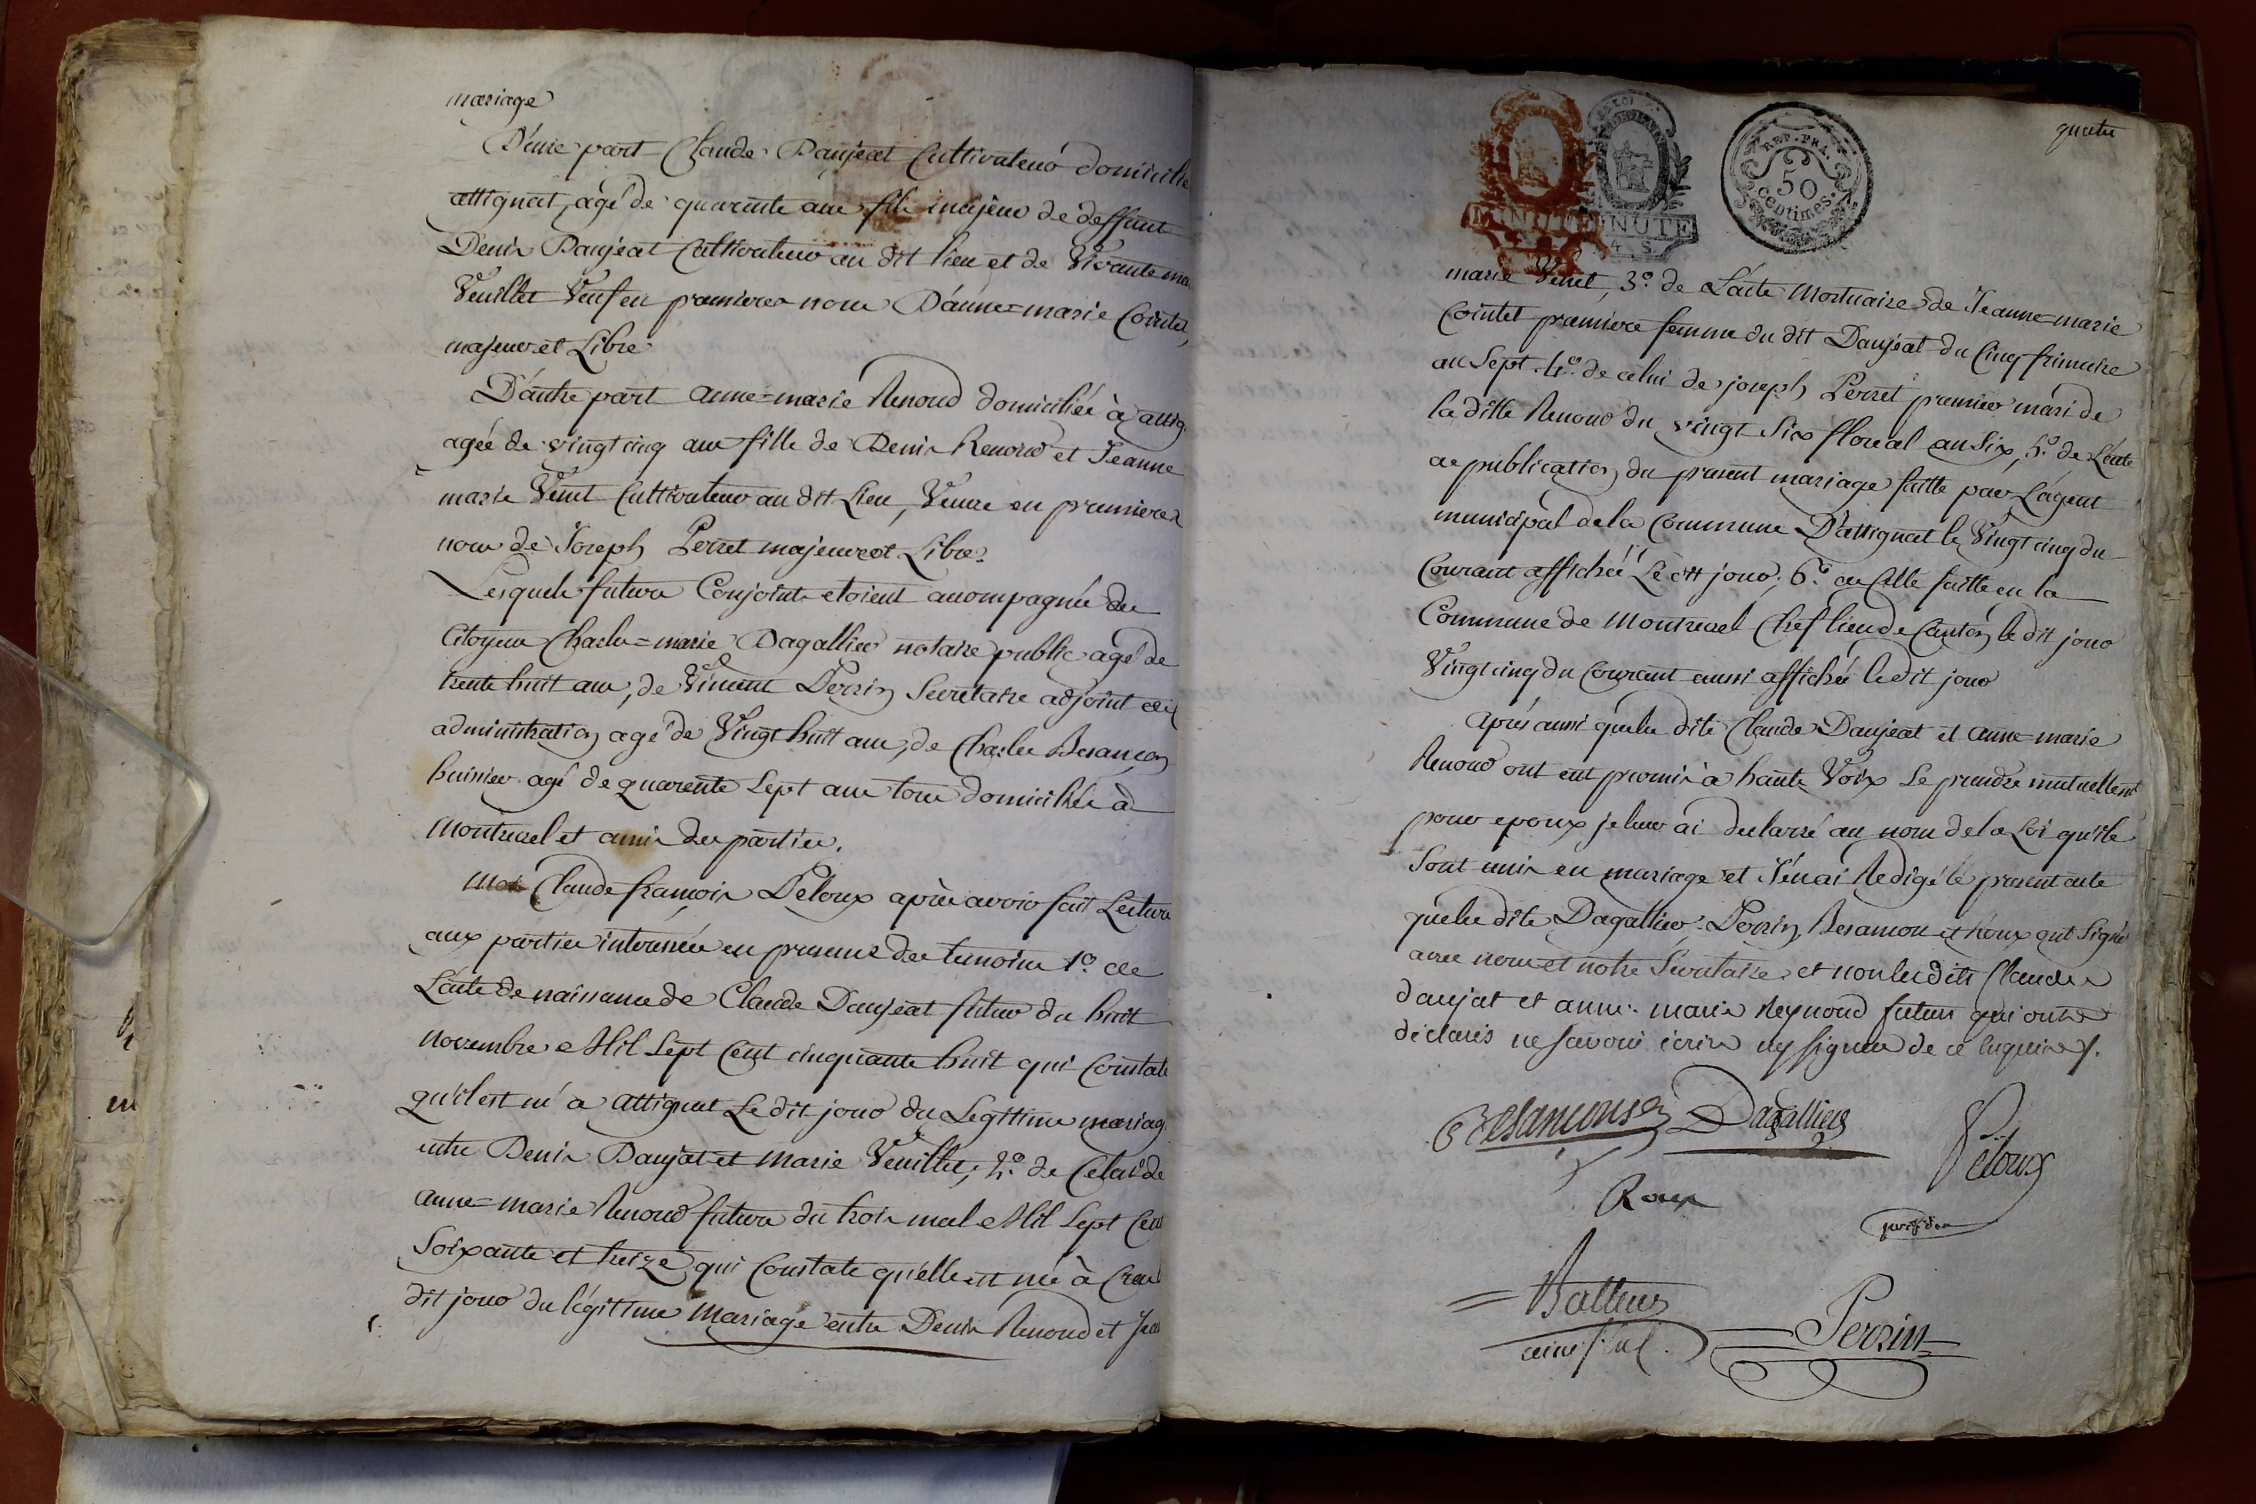 mariage
D'une part Claude Daujeat Cultivateur domicilié
attignat, agé de quarente ans fils majeur de deffunt
Denis Daujeat Cultivateur au dit lieu et de Vivante
Veuillet Veuf en premieres noces D'anne=marie Cointet,
majeur et Libre
D'autre part anne=marie Renoud domiciliée à attig
agée de vingt cinq ans fille de Denis Renoud et Jeanne
marie Venet Cultivateur au dit Lieu, Veuve en premieres
noces de Joseph Perret majeure et Libre.
Lesquels futurs Conjoints etoient accompagnés des
Citoyens Charles=marie Dagallier notaire public agé de
trente huit ans, de Vincent Perrin Secretaire adjoint de
administration agé de Vingt huit ans, de Charles Besançon
huissier agé de quarente Sept ans tous domiciliés à
Montrevel et amis des parties.
Moi Claude françois Peloux après avoir fait Lecture
aux parties intéressées en presence des temoins 1º. de
L'acte de naissance de Claude Daujeat futur du huit
novembre Mil Sept Cent cinquante huit qui Constate
qu'il est né a attignat Le dit jour du Legitime mariag
entre Denis Daujat et Marie Veuillet, 2º. de Celui de
anne=marie Renoud future du trois Mil Sept Cent
Soixante et treize qui Constate qu'elle est née à
dit jour du légitime Mariage entre Denis Renoud et
quatre
MINUTE
MINUTE
4 S.
REP. FRA.
50
centimes.
marie Venet, 3º. de L'acte Mortuaire de Jeanne=marie
Cointet premiere femme du dit Daujeat du Cinq frimaire
an Sept. 4º. de celui de joseph Perret premier mari de
la ditte Renoud du vingt Six floreal an Six, 5º. de L'acte
de publication du present mariage faitte par L'agent
municipal de la Commune D'attignat le Vingt cinq du
Courant affichée Le dit jour, 6º. de Celle faitte en la
Commune de Montrevel Chef lieu de Canton le dit jour
Vingt cinq du Courant aussi affichée le dit jour
Après aussi que les dits Claude Daujeat et anne=marie
Renoud ont eut promis à haute Voix Se prendre mutuellement
pour epoux je leur ai declarré au nom de la Loi qu'ils
Sont unis en mariage et J'en ai Redigé le present acte
que les dits Dagallier, Perrin, Besancon et Roux ont Signé
avec nous et notre Secretaire et non les dits Claude
daujat et anne-marie Reynoud futurs qui ont
déclarés ne savoir écrire ny signer de ce enquis.
Besancenson Dagallier
Peloux
Roux
president
Perrin